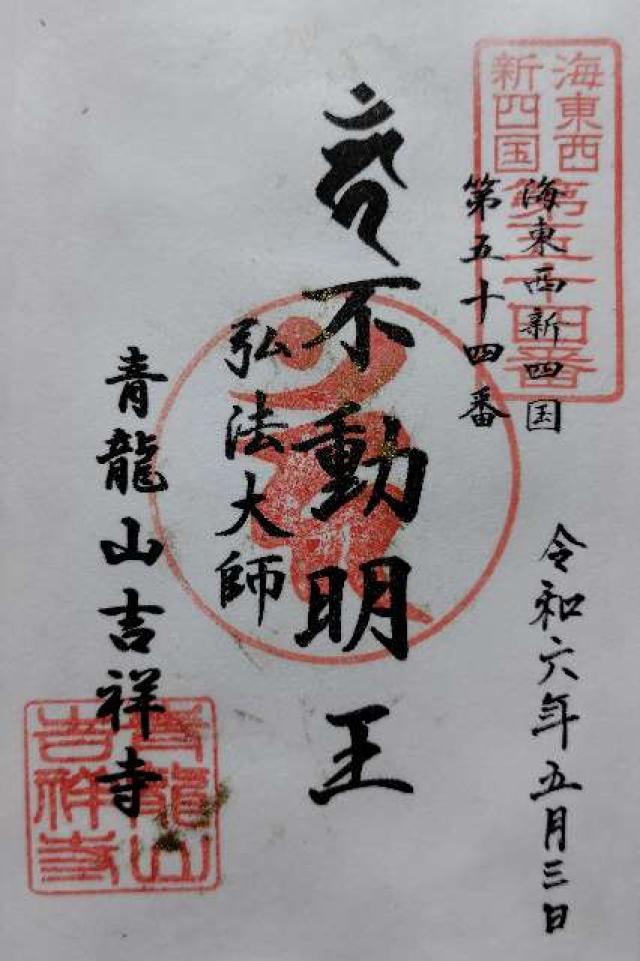 海東西
新四国
第五十四番
海東西新四国
第五十四番
令和六年五月三日
不動明王
弘法大師
青龍山吉祥寺
青龍山
吉祥寺